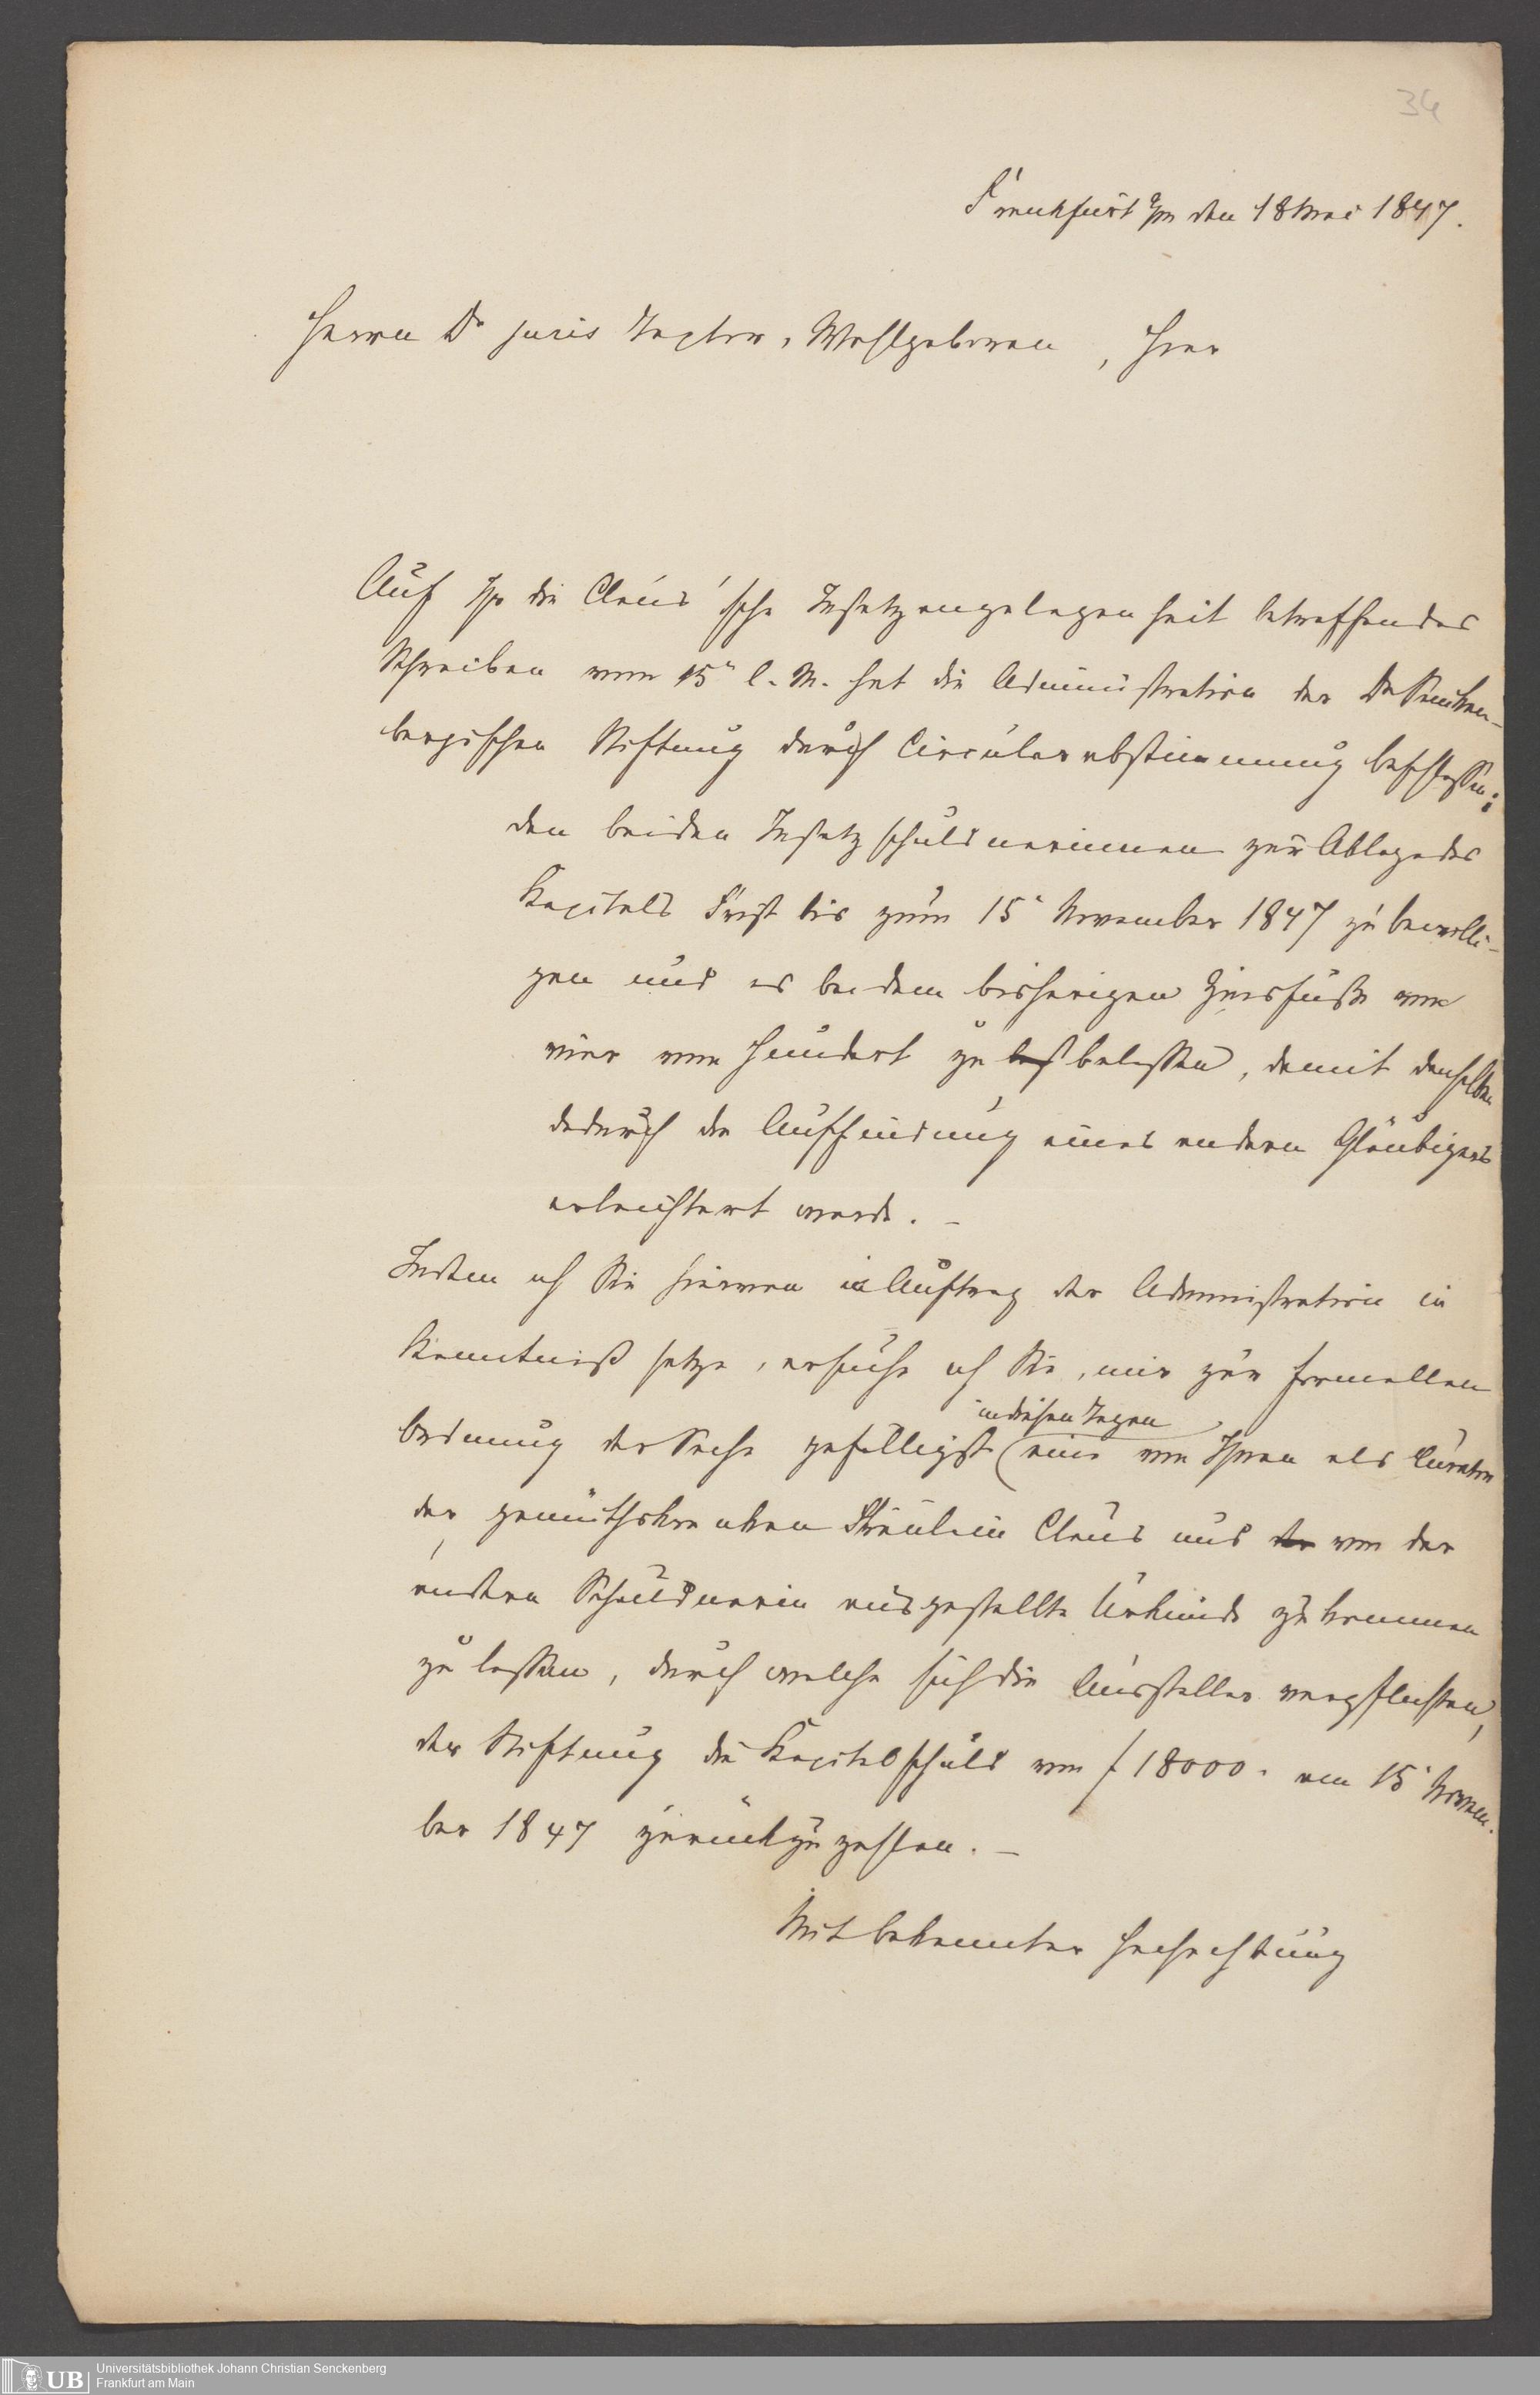 34
Frankfurt a/m den 18 Mai 1847.
Herrn Dr juris Textor, Wohlgeboren, Hier
Auf Ihr die Claus'sche Insatzangelegenheit betreffendes
Schreiben vom 15n l. M. hat die Administration der Dr Sencken-
bergischen Stiftung durch Circularabstimmung beschlossen:
den beiden Insatzschuldnerinnen zur Ablage des
Kapitals Frist bis zum 15n November 1847 zu bewilli-
gen und es bei dem bisherigen Zinsfuße von
vier vom Hundert zu belassen, damit denselben
dadurch die Auffindung eines andern Gläubigers
erleichtert werde. –
Indem ich Sie hiervon in Auftrag der Administration in
Kenntniß setze, ersuche ich Sie, mir zur formellen
Ordnung der Sache gefälligst (eine von Ihnen als Curator
in diesen Tagen
der gemüthskranken Fräulein Claus und von der
andern Schuldnerin ausgestellte Urkunde zukommen
zu lassen, durch welche sich die Aussteller verpflichten,
der Stiftung die Kapitalschuld von f 18000. am 15n Novem-
ber 1847 zurückzuzahlen. –
Mit bekannter Hochachtung
Universitätsbibliothek Johann Christian Senckenberg
UB Frankfurt am Main